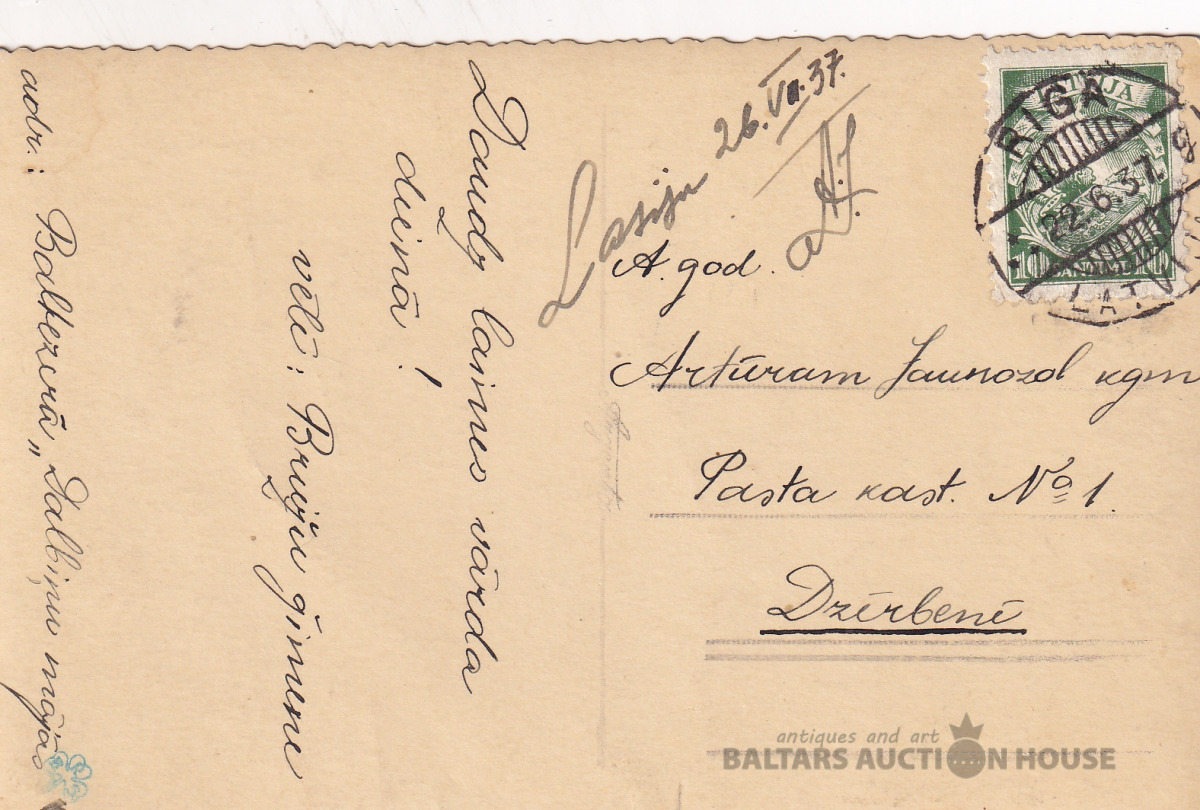 Daudz laimes vārda
dienā!
vēlē: Bruņu ģimene
adr.: Baltezerā „Dalbiņu mājās
Lasiju 26.VII.37.
A. god.
Artūram Jaunozol kgm
Pasta kast. No 1.
Dzērbenē
LATVIJA
RIGA
22.6.37.
LATV
10
antiques and art
BALTARS AUCTION HOUSE